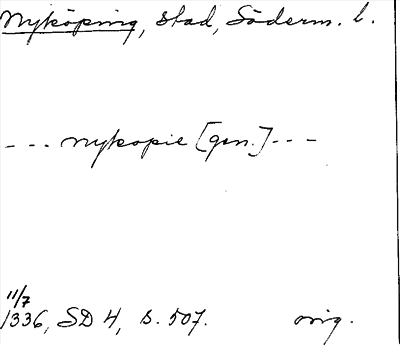 Nyköping, stad, Söderm. l.
- - - nykopie [gen.] - - -
11/7
1336, SD 4, s. 507. orig.